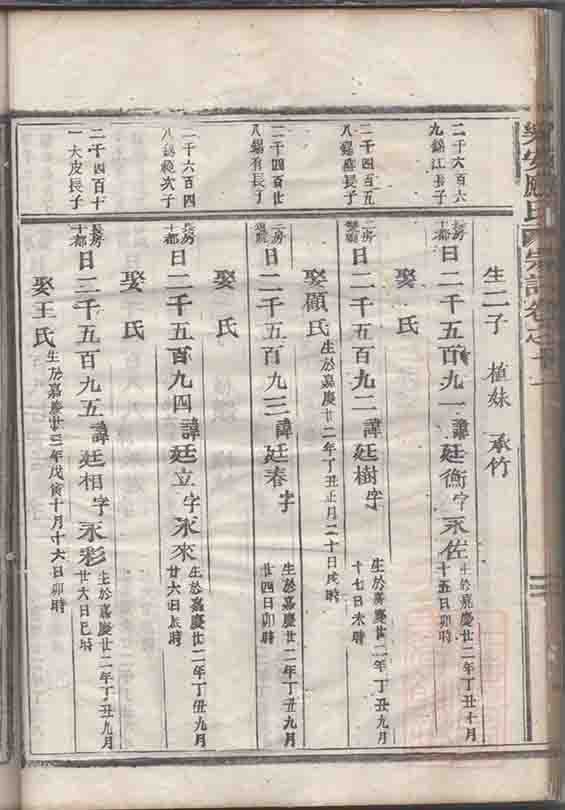 樂安應氏西宗譜卷之十一
生二子 植妹 承竹
二千六百六
九錫江長子
長房
十都
日二千五百九一諱廷衡字永佐
生於嘉慶廿二年丁丑十月
十五日卯時
娶 氏
二千四百五
八錫
長子
二房
日二千五百九二諱廷樹字
生於嘉慶廿二年丁丑九月
十七日未時
娶顧氏
生於嘉慶廿二年丁丑正月二十日戌時
二千四百廿
八錫有長子
二房
日二千五百九三諱廷春字
生於嘉慶廿二年丁丑九月
廿四日卯時
娶 氏
二千六百四
八錫
次子
長房
十都
日二千五百九四諱廷立字永來
生於嘉慶廿二年丁丑九月
廿六日辰時
娶 氏
二千四百十
一大皮長子
長房
十都
日二千五百九五諱廷相字永彩
生於嘉慶廿二年丁丑九月
廿八日巳時
娶王氏
生於嘉慶廿三年戊寅十月十六日卯時